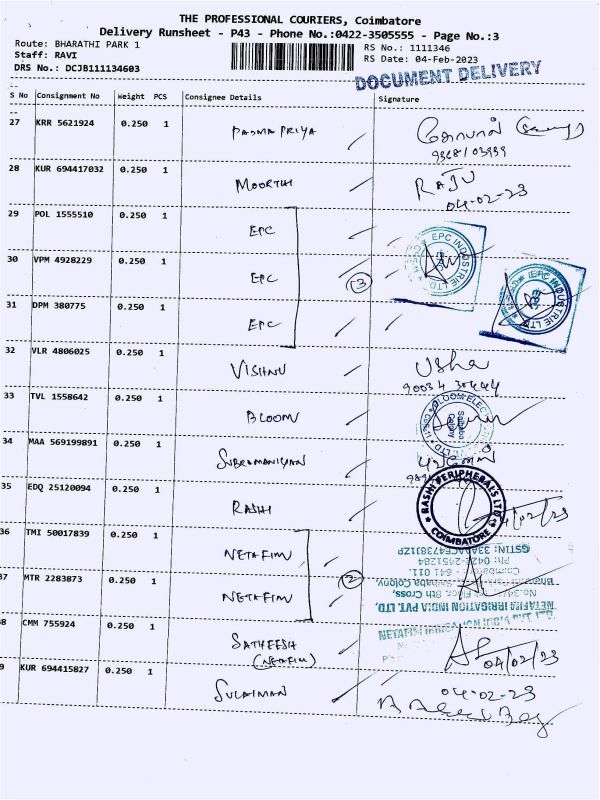 THE PROFESSIONAL COURIERS, Coimbatore
Delivery Runsheet - P43 - Phone No.:0422-3505555 - Page No.:3
Route: BHARATHI PARK 1 RS No.: 1111346
Staff: RAVI RS Date: 04-Feb-2023
DRS No.: DCJB111134603
DOCUMENT DELIVERY
S No Consignment No Weight PCS Consignee Details Signature
27 KRR 5621924 0.250 1 PADMA PRIYA
28 KUR 694417032 0.250 1 MOORTHI RAJU
04-02-23
29 POL 1555510 0.250 1 EPC
30 VPM 4928229 0.250 1 EPC 3
EPC INDUSTRIE LTD
EPC INDUSTRIE LTD
31 DPM 380775 0.250 1 EPC
32 VLR 4806025 0.250 1 VISHNU Usha
33 TVL 1558642 0.250 1 BLOOM
Saibaba Colony
34 MAA 569199891 0.250 1 SUBRAMANIYAN
35 EDQ 25120094 0.250 1 RASHI
RASHI PERIPHERALS LTD
COIMBATORE
04/02/23
36 TMI 50017839 0.250 1 NETAFIM
37 MTR 2283873 0.250 1 NETAFIM 2
NETAFIM IRRIGATION INDIA PVT. LTD.
8th Cross,
Saibaba Colony
Coimbatore - 641 011.
Ph: 0422-2451284
38 CMM 755924 0.250 1 SATHEESH
(NETAFIM)
04/02/23
39 KUR 694415827 0.250 1 SULAIMAN 04-02-23